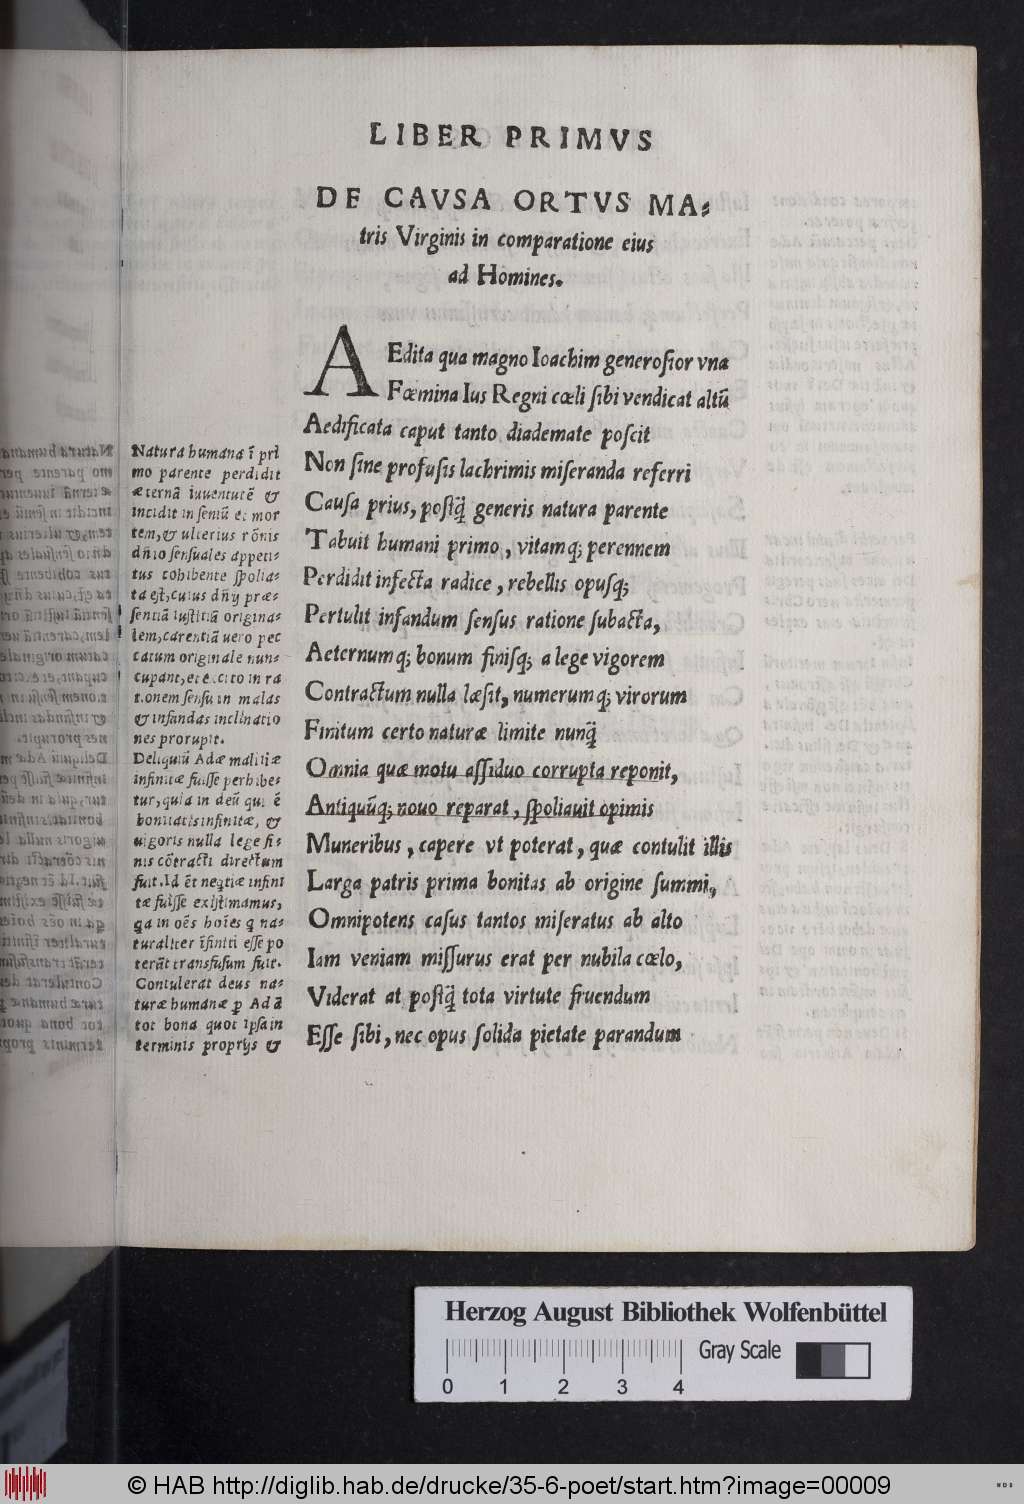 LIBER PRIMVS
DE CAVSA ORTVS MA⸗
tris Virginis in comparatione eius
ad Homines.
AEdita qua magno Ioachim generoſior vna
Fœmina Ius Regni cœli ſibi vendicat altũ
Aedificata caput tanto diademate poſcit
Non ſine profuſis lachrimis miſeranda referri
Cauſa prius, poſtq̃ generis natura parente
Tabuit humani primo, vitamq; perennem
Perdidit infecta radice, rebellis opusq;
Pertulit infandum ſenſus ratione ſubacta,
Aeternumq; bonum finiſq; a lege vigorem
Contractum nulla læſit, numerumq; virorum
Finitum certo naturæ limite nunq̃
Omnia quæ motu aſſiduo corrupta reponit,
Antiquũq; nouo reparat, ſpoliauit opimis
Muneribus, capere vt poterat, quæ contulit illis
Larga patris prima bonitas ab origine ſummi,
Omnipotens caſus tantos miſeratus ab alto
Iam veniam miſſurus erat per nubila cœlo,
Viderat at poſtq̃ tota virtute fruendum
Eſſe ſibi, nec opus ſolida pietate parandum
Natura humana ĩ pri
mo parente perdidit
æternã iuuentutẽ &
incidit in ſeniũ et mor
tem, & ulterius rõnis
dñio ſenſuales appeti⸗
tus cohibente ſpolia⸗
ta eſt, cuius dñij præ⸗
ſentiã iuſtitiã origina⸗
lem, carentiã uero pec
catum originale nun⸗
cupant, et excito in ra
tionem ſenſu in malas
& infandas inclinatio
nes prorupit.
Deliquiũ Adæ malitiæ
infinitæ fuiſſe perhibe⸗
tur, quia in deũ qui ẽ
bonitatis infinitæ, &
uigoris nulla lege fi⸗
nis cõtracti directum
fuit. Id ẽt neq̃tiæ infini
tæ fuiſſe exiſtimamus,
q̃a in oẽs hoĩes q na⸗
turaliter ĩfiniti eſſe po
terãt transfuſum fuit.
Contulerat deus na⸗
turæ humanæ ꝑ Adã
tot bona quot ipſa in
terminis proprijs &
Herzog August Bibliothek Wolfenbüttel
Gray Scale
0 1 2 3 4
© HAB http://diglib.hab.de/drucke/35-6-poet/start.htm?image=00009